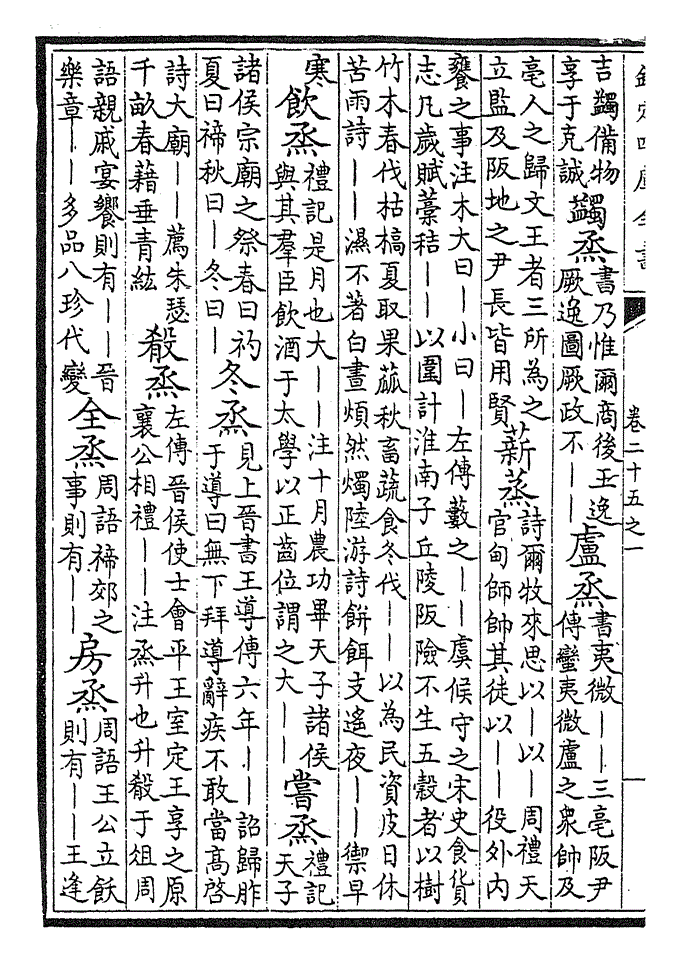 欽定四庫全書
卷二十五之一
一
吉蠲備物
享于克誠
蠲烝
書乃惟爾商後王逸
厥逸圖厥政不——
盧烝
書夷微——三亳阪尹
傳蠻夷微盧之衆帥及
亳人之歸文王者三所為之
立監及阪地之尹長皆用賢
薪蒸
詩爾牧來思以—以—周禮天
官甸師帥其徒以——役外內
饔之事注木大曰—小曰—左傳藪之——虞候守之宋史食貨
志凡歲賦藁秸——以圍計淮南子丘陵阪險不生五穀者以樹
竹木春伐枯槁夏取果蓏秋畜蔬食冬伐——以為民資皮日休
苦雨詩——濕不著白晝煩然燭陸游詩餅餌支遙夜——禦早
寒
飲烝
禮記是月也大——注十月農功畢天子諸侯
與其羣臣飲酒于太學以正齒位謂之大——
嘗烝
禮記
天子
諸侯宗廟之祭春曰礿
夏曰禘秋曰—冬曰—
冬烝
見上晉書王導傳六年——詔歸胙
于導曰無下拜導辭疾不敢當高啓
詩大廟——薦朱瑟
千畝春藉垂青紘
殽烝
左傳晉侯使士會平王室定王享之原
襄公相禮——注烝升也升殽于俎周
語親戚宴饗則有——晉
樂章——多品八珍代變
全烝
周語禘郊之
事則有——
房烝
周語王公立飫
則有——王逢